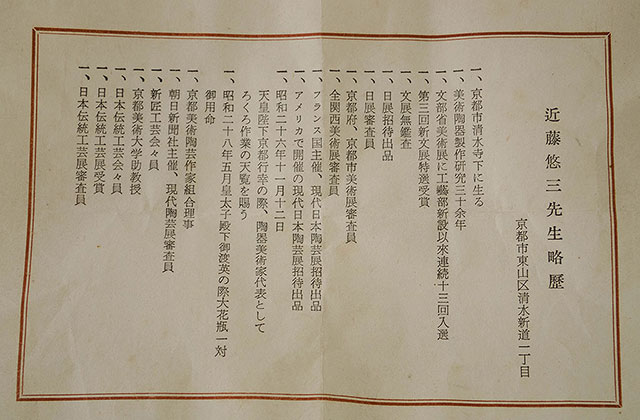 近藤悠三先生略歴
京都市東山区清水新道一丁目
一、京都市清水寺下に生る
一、美術陶器製作研究三十余年
一、文部省美術展に工藝部新設以來連続十三回入選
一、第三回新文展特選受賞
一、文展無鑑査
一、日展招待出品
一、日展審査員
一、京都府、京都市美術展審査員
一、全関西美術展審査員
一、フランス国主催、現代日本陶芸展招待出品
一、アメリカで開催の現代日本陶芸展招待出品
一、昭和二十六年十一月十二日
天皇陛下京都行幸の際、陶器美術家代表として
ろくろ作業の天覧を賜う
一、昭和二十八年五月皇太子殿下御渡英の際大花瓶一対
御用命
一、京都美術陶芸作家組合理事
一、朝日新聞社主催、現代陶芸展審査員
一、新匠工芸会々員
一、京都美術大学助教授
一、日本伝統工芸会々員
一、日本伝統工芸展受賞
一、日本伝統工芸展審査員